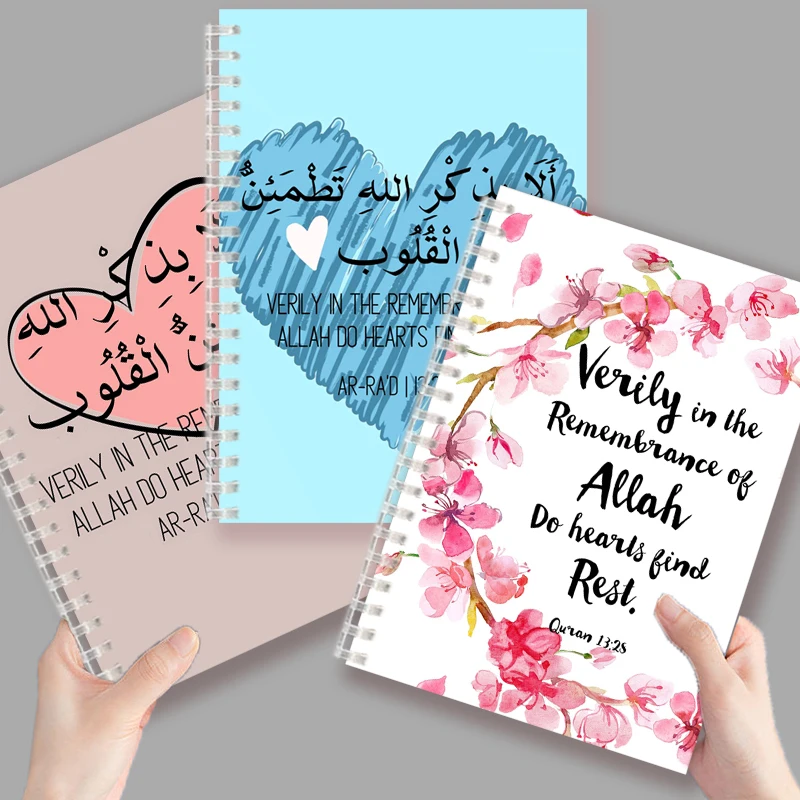 بِذِكْرِ اللهِ
الْقُلُوب
VERILY IN THE
ALLAH DO
أَلَا بِذِكْرِ اللهِ تَطْمَئِنُّ
الْقُلُوب
VERILY IN THE
ALLAH DO HEARTS
AR-RA'D |
Verily in the
Remembrance of
Allah
Do hearts find
Rest.
Quran 13:28